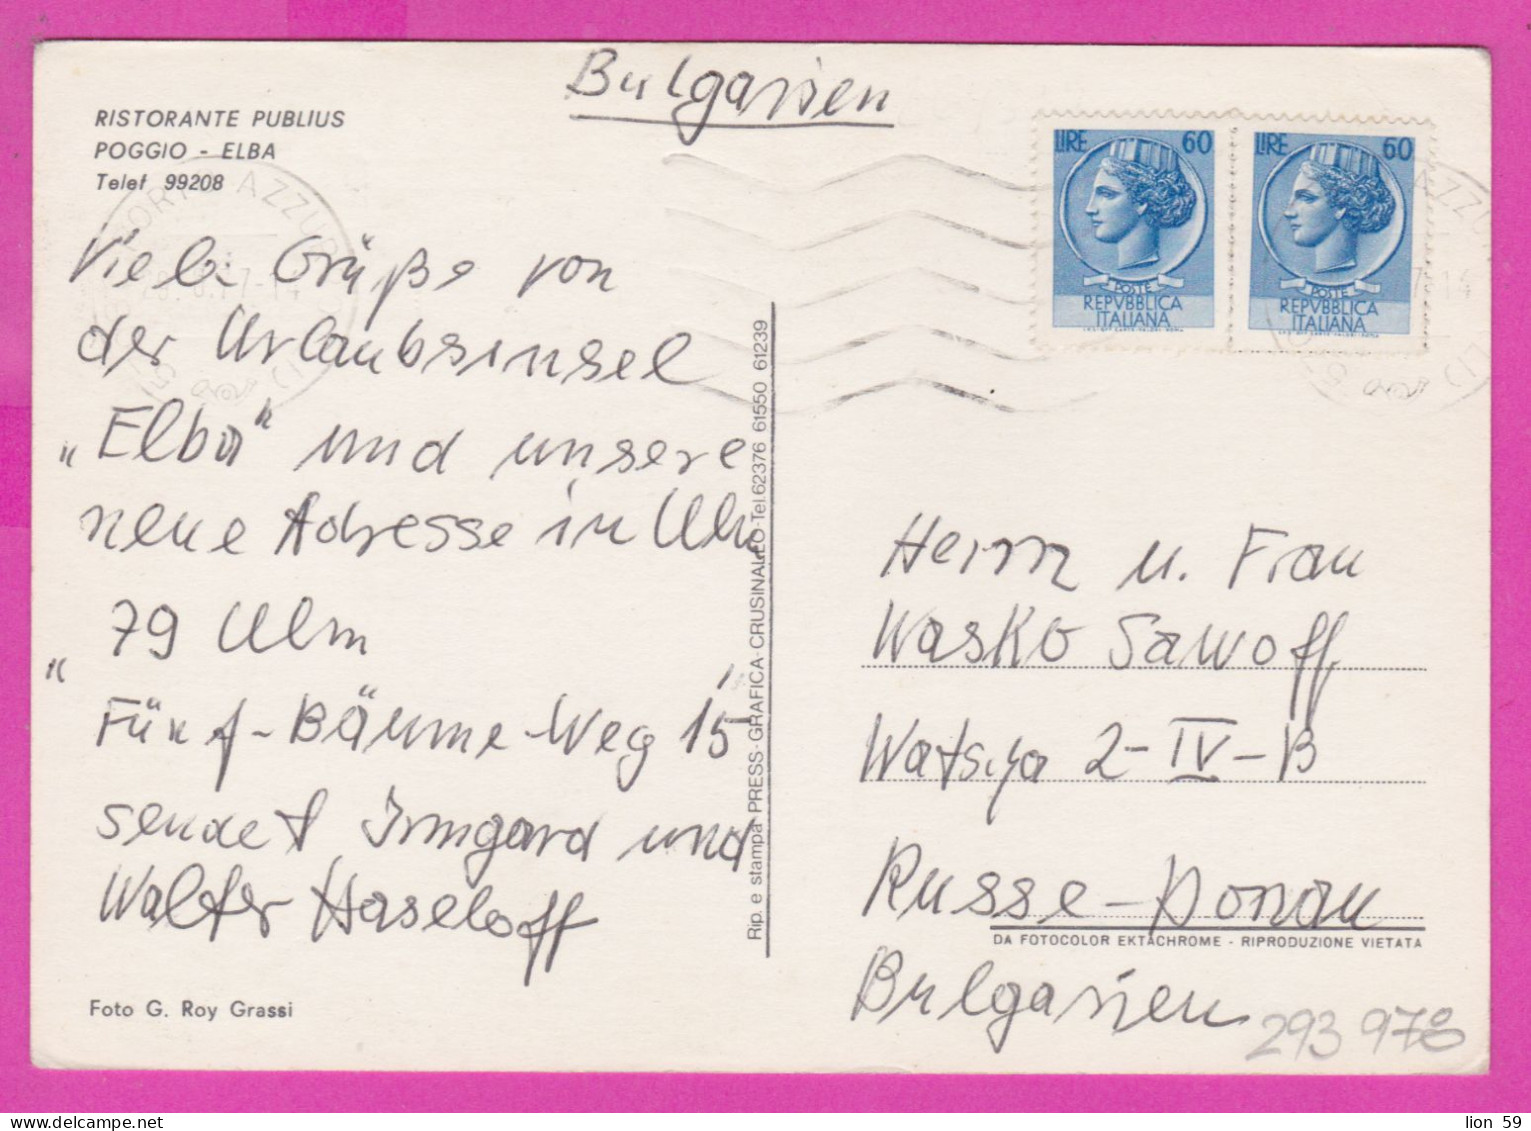 Bulgarien
RISTORANTE PUBLIUS
POGGIO - ELBA
Telef 99208
LIRE 60
POSTE
REPVBBLICA
ITALIANA
LIRE 60
POSTE
REPVBBLICA
ITALIANA
Viele Grüße von
der Urlaubsinsel
„Elba" und unsere
neue Adresse in Ulm
79 Ulm
"
Fünf-Bäume-Weg 15
sendet Irmgard und
Walter Haseloff
Foto G. Roy Grassi
Rip. e stampa PRESS-GRAFICA-CRUSINALLO-Tel.62376 61550 61239
Herrn u. Frau
Wasko Sawoff
Watsya 2-IV-B
Russe-Donau
DA FOTOCOLOR EKTACHROME - RIPRODUZIONE VIETATA
Bulgarien
293 978
lion 59